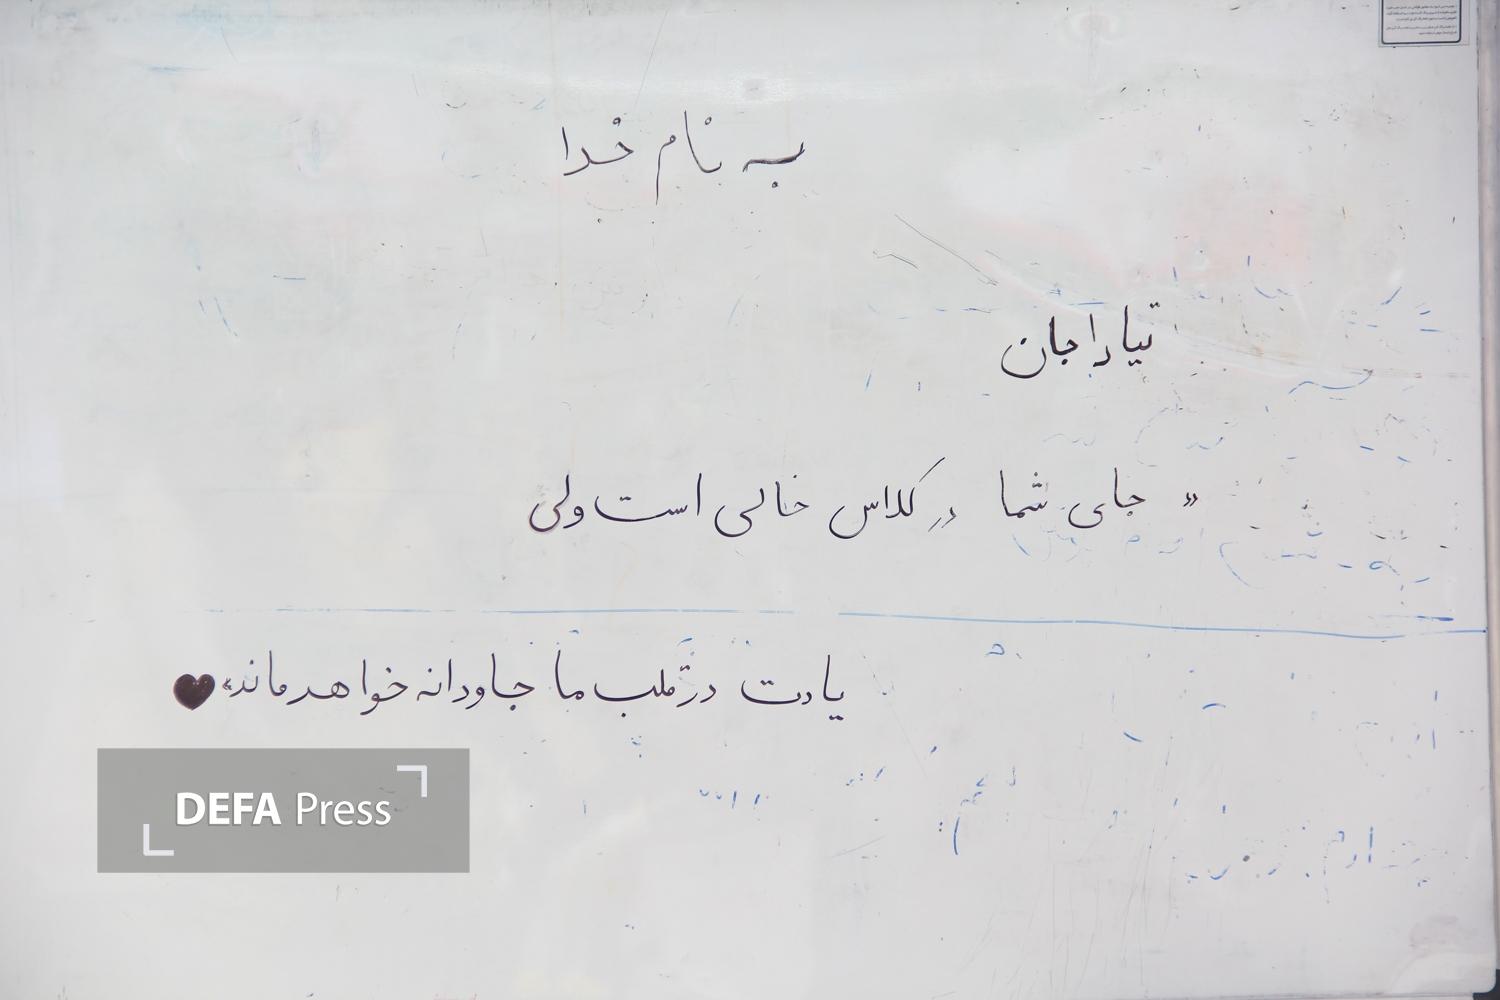 به نام خدا
تیارا جان
« جای شما در کلاس خالی است ولی
یادت در قلب ما جاودانه خواهد ماند» ♥
DEFA Press